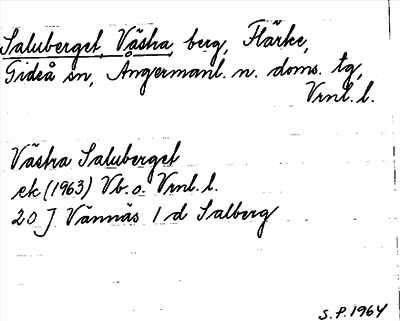 Saluberget, Västra, berg, Flärke,
Gideå sn, Ångermanl. n. doms. tg,
Vrnl. l.
Västra Saluberget
ek (1963) Vb. o. Vrnl. l.
20 J Vännäs 1 d Salberg
S.P. 1964